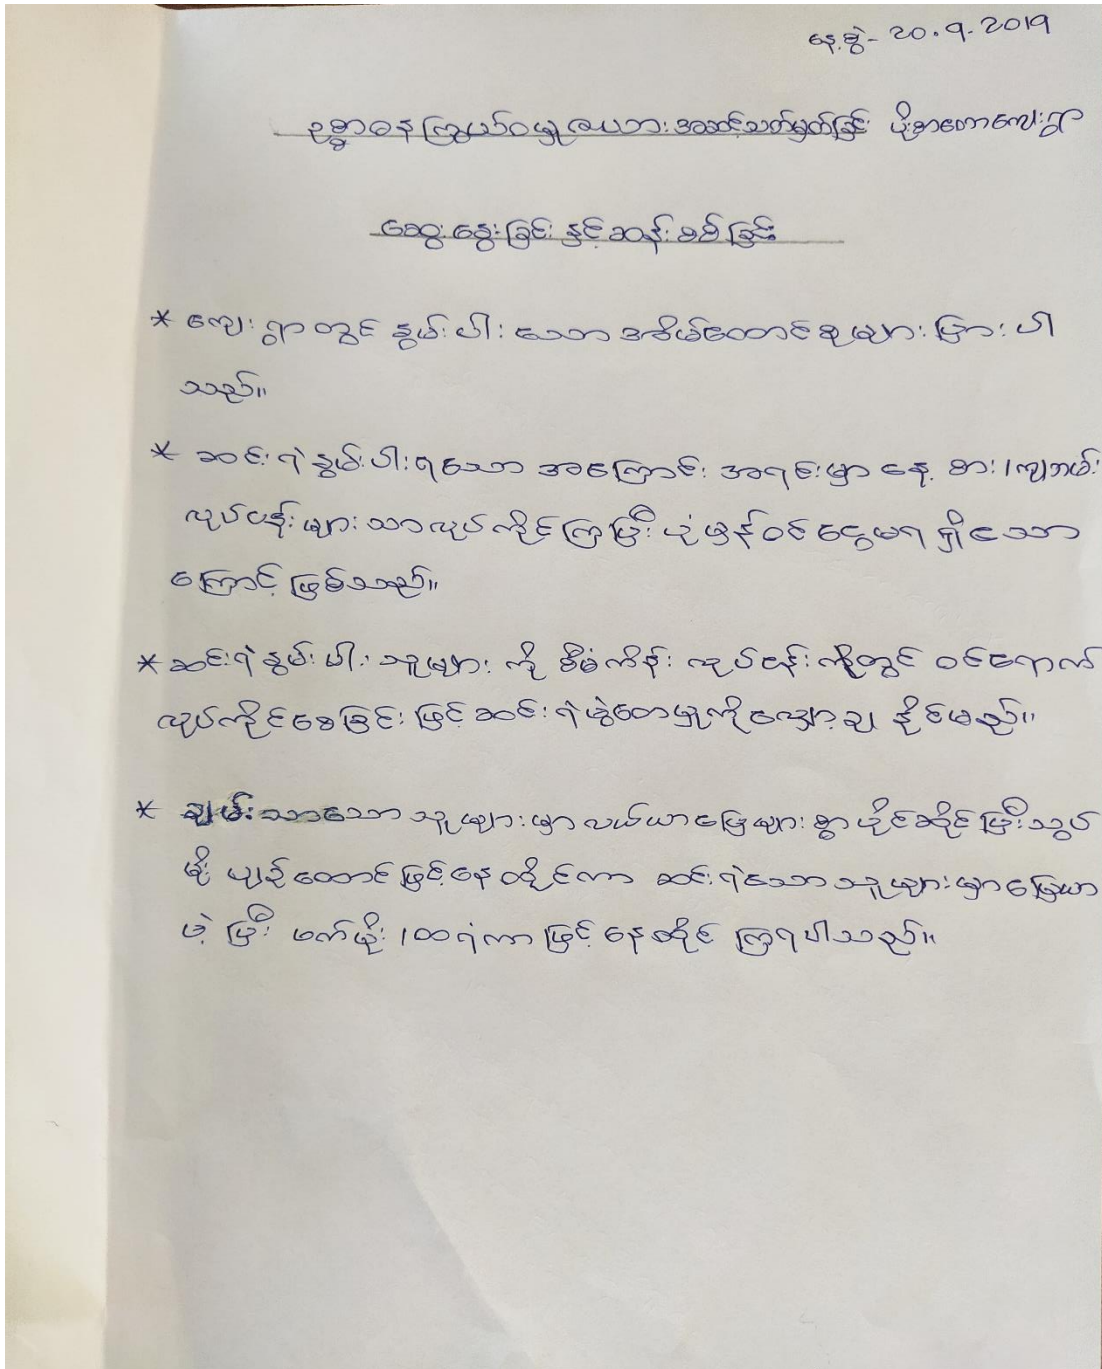 နေ့စွဲ - 20.9.2019
ဥစ္စာဓနကြွယ်ဝမှုဇယားအဆင့်သတ်မှတ်ခြင်း ပိုးစာတောကျေးရွာ
ဆွေးနွေးခြင်းနှင့်ဆန်းစစ်ခြင်း
* ကျေးရွာတွင် နွမ်းပါးသော အိမ်ထောင်စုများ များပါ
သည်။
* ဆင်းရဲနွမ်းပါးရသော အကြောင်းအရင်းမှာ နေ့စား/ကျဘမ်း
လုပ်ငန်းများသာလုပ်ကိုင်ကြပြီး ပုံမှန်ဝင်ငွေမရရှိသော
ကြောင့်ဖြစ်သည်။
* ဆင်းရဲနွမ်းပါးသူများကို စီမံကိန်းလုပ်ငန်းကိုတွင် ဝင်ရောက်
လုပ်ကိုင်စေခြင်းဖြင့်ဆင်းရဲမွဲတေမှုကိုလျှော့ချ နိုင်မည်။
* ချမ်းသာသောသူများမှာလယ်ယာမြေများစွာပိုင်ဆိုင်ပြီးသွပ်
မိုး ပျဉ်ထောင်ဖြင့်နေထိုင်ကာ ဆင်းရဲသောသူများမှာမြေယာ
မဲ့ပြီး ဖက်မိုး/ထရံကာဖြင့်နေထိုင်ကြရပါသည်။